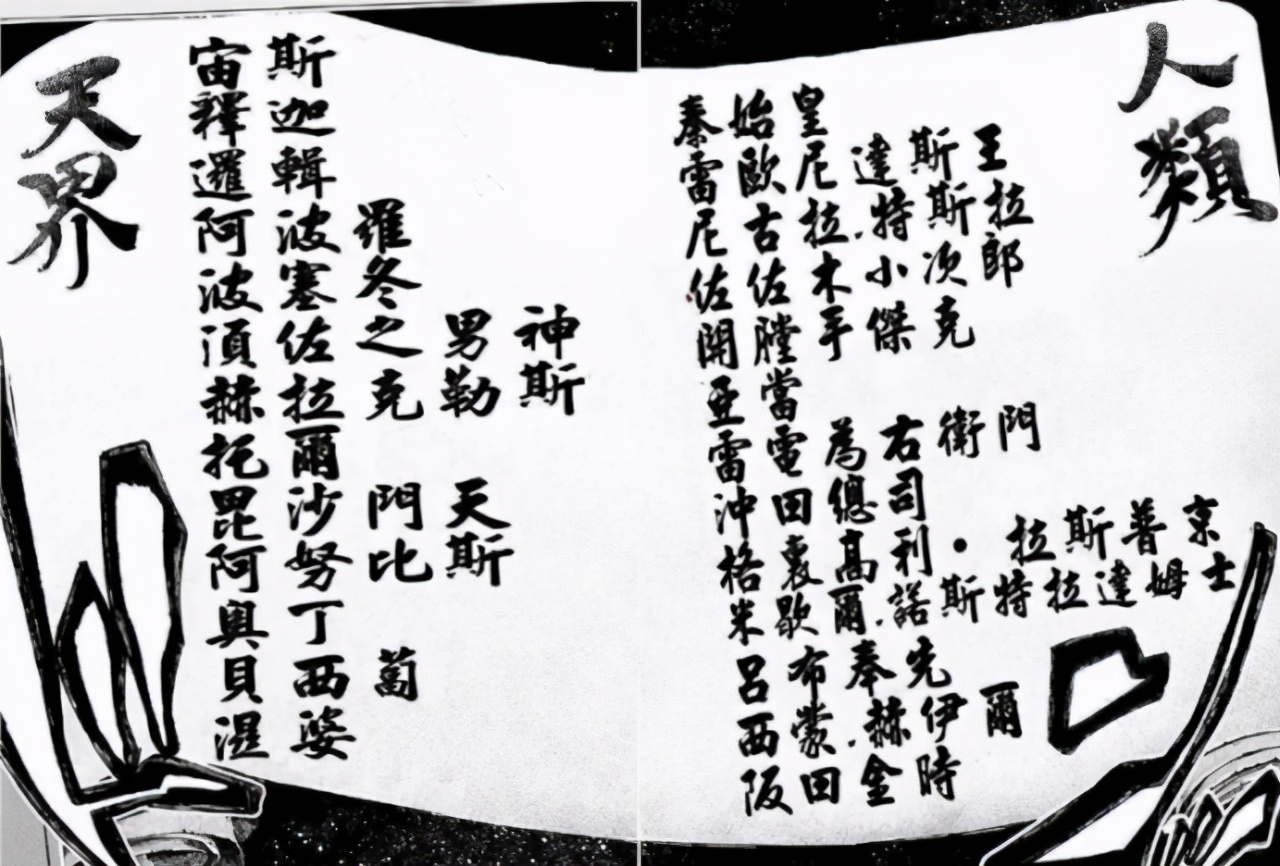 天界
宙斯
釋迦
邏輯
阿波羅
波塞冬
須佐之男神
赫拉克勒斯
托爾
毘沙門天
阿努比斯
奧丁
貝西葛
湿婆
人類
秦始皇
雷歐尼達斯王
尼古拉.特斯拉
佐佐木小次郎
開膛手傑克
亞當
雷電為右衛門
沖田總司
格裏高利•拉斯普京
米歇爾.諾斯特拉達姆士
呂布奉先
西蒙.赫伊爾
阪田金時